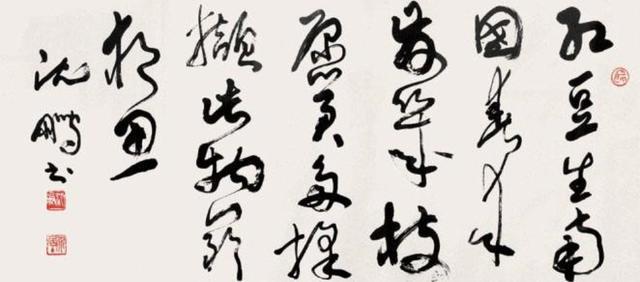 红豆生南
國春来
發幾枝
愿君多採
撷此物最
相思
沈鹏书